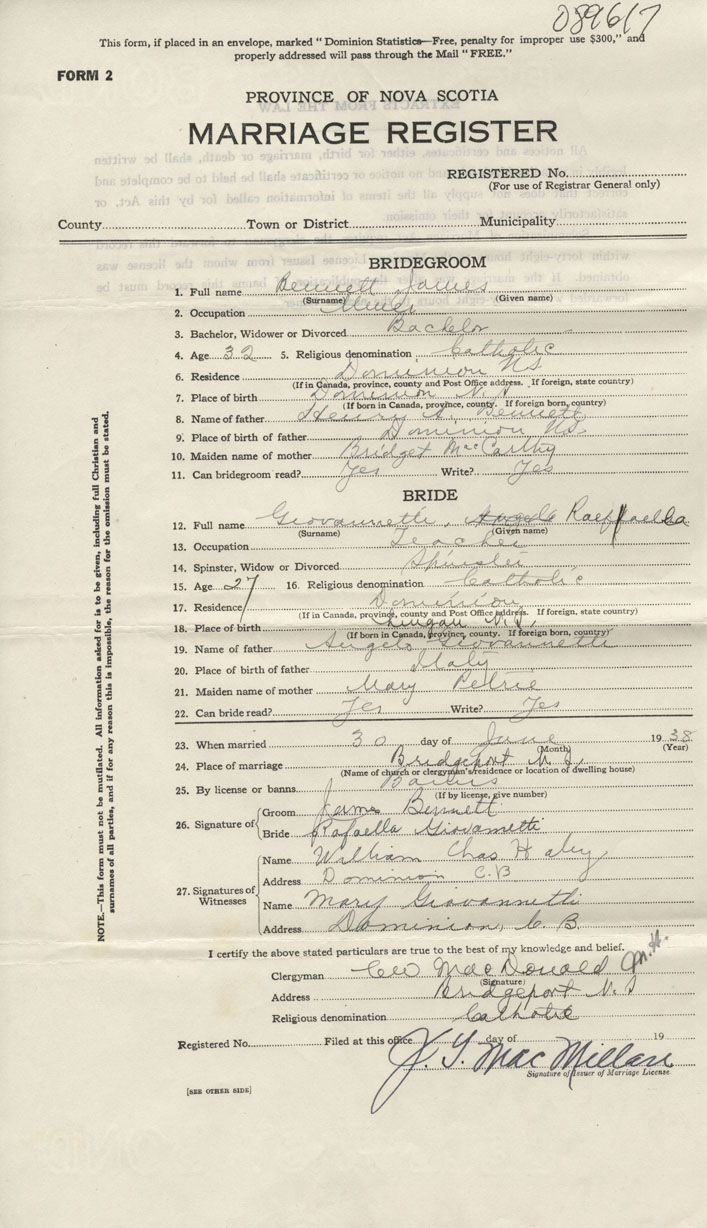 089617
This form, if placed in an envelope, marked "Dominion Statistics—Free, penalty for improper use $300," and
properly addressed will pass through the Mail "FREE."
FORM 2
PROVINCE OF NOVA SCOTIA
MARRIAGE REGISTER
REGISTERED No.
(For use of Registrar General only)
County Town or District Municipality
BRIDEGROOM
1. Full name Bennett James
(Surname) (Given name)
2. Occupation Miner
3. Bachelor, Widower or Divorced Bachelor
4. Age 32 5. Religious denomination Catholic
6. Residence Dominion NS
(If in Canada, province, county and Post Office address. If foreign, state country)
7. Place of birth Dominion N.S
(If born in Canada, province, county. If foreign born, country)
8. Name of father Henry Bennett
9. Place of birth of father Dominion NS.
10. Maiden name of mother Bridget MacCarthy
11. Can bridegroom read? Yes Write? Yes
BRIDE
12. Full name Giovannetti, Angelo Raeffaella
(Surname) (Given name)
13. Occupation Teacher
14. Spinster, Widow or Divorced Spinster
15. Age 27 16. Religious denomination Catholic
17. Residence Dominion
(If in Canada, province, county and Post Office address. If foreign, state country)
18. Place of birth Lingan N.S.
(If born in Canada, province, county. If foreign born, country)
19. Name of father Angelo Giovannetti
20. Place of birth of father Italy
21. Maiden name of mother Mary Petrie
22. Can bride read? Yes Write? Yes
23. When married 30 day of June 1938
(Month) (Year)
24. Place of marriage Bridgeport N.S.
(Name of church or clergyman's residence or location of dwelling house)
25. By license or banns Banns
(If by license, give number)
26. Signature of Groom James Bennett
Bride Rafaella Giovannetti
27. Signatures of Witnesses Name William Chas Haley
Address Dominion C.B
Name Mary Giovannetti
Address Dominion, C. B.
I certify the above stated particulars are true to the best of my knowledge and belief.
Clergyman MacDonald M.H.
(Signature)
Address Bridgeport N.S
Religious denomination Catholic
Registered No. Filed at this office day of 19
J. Y. MacMillan
Signature of Issuer of Marriage License
[SEE OTHER SIDE]
NOTE.—This form must not be mutilated. All information asked for is to be given, including full Christian and
surnames of all parties, and if for any reason this is impossible, the reason for the omission must be stated.